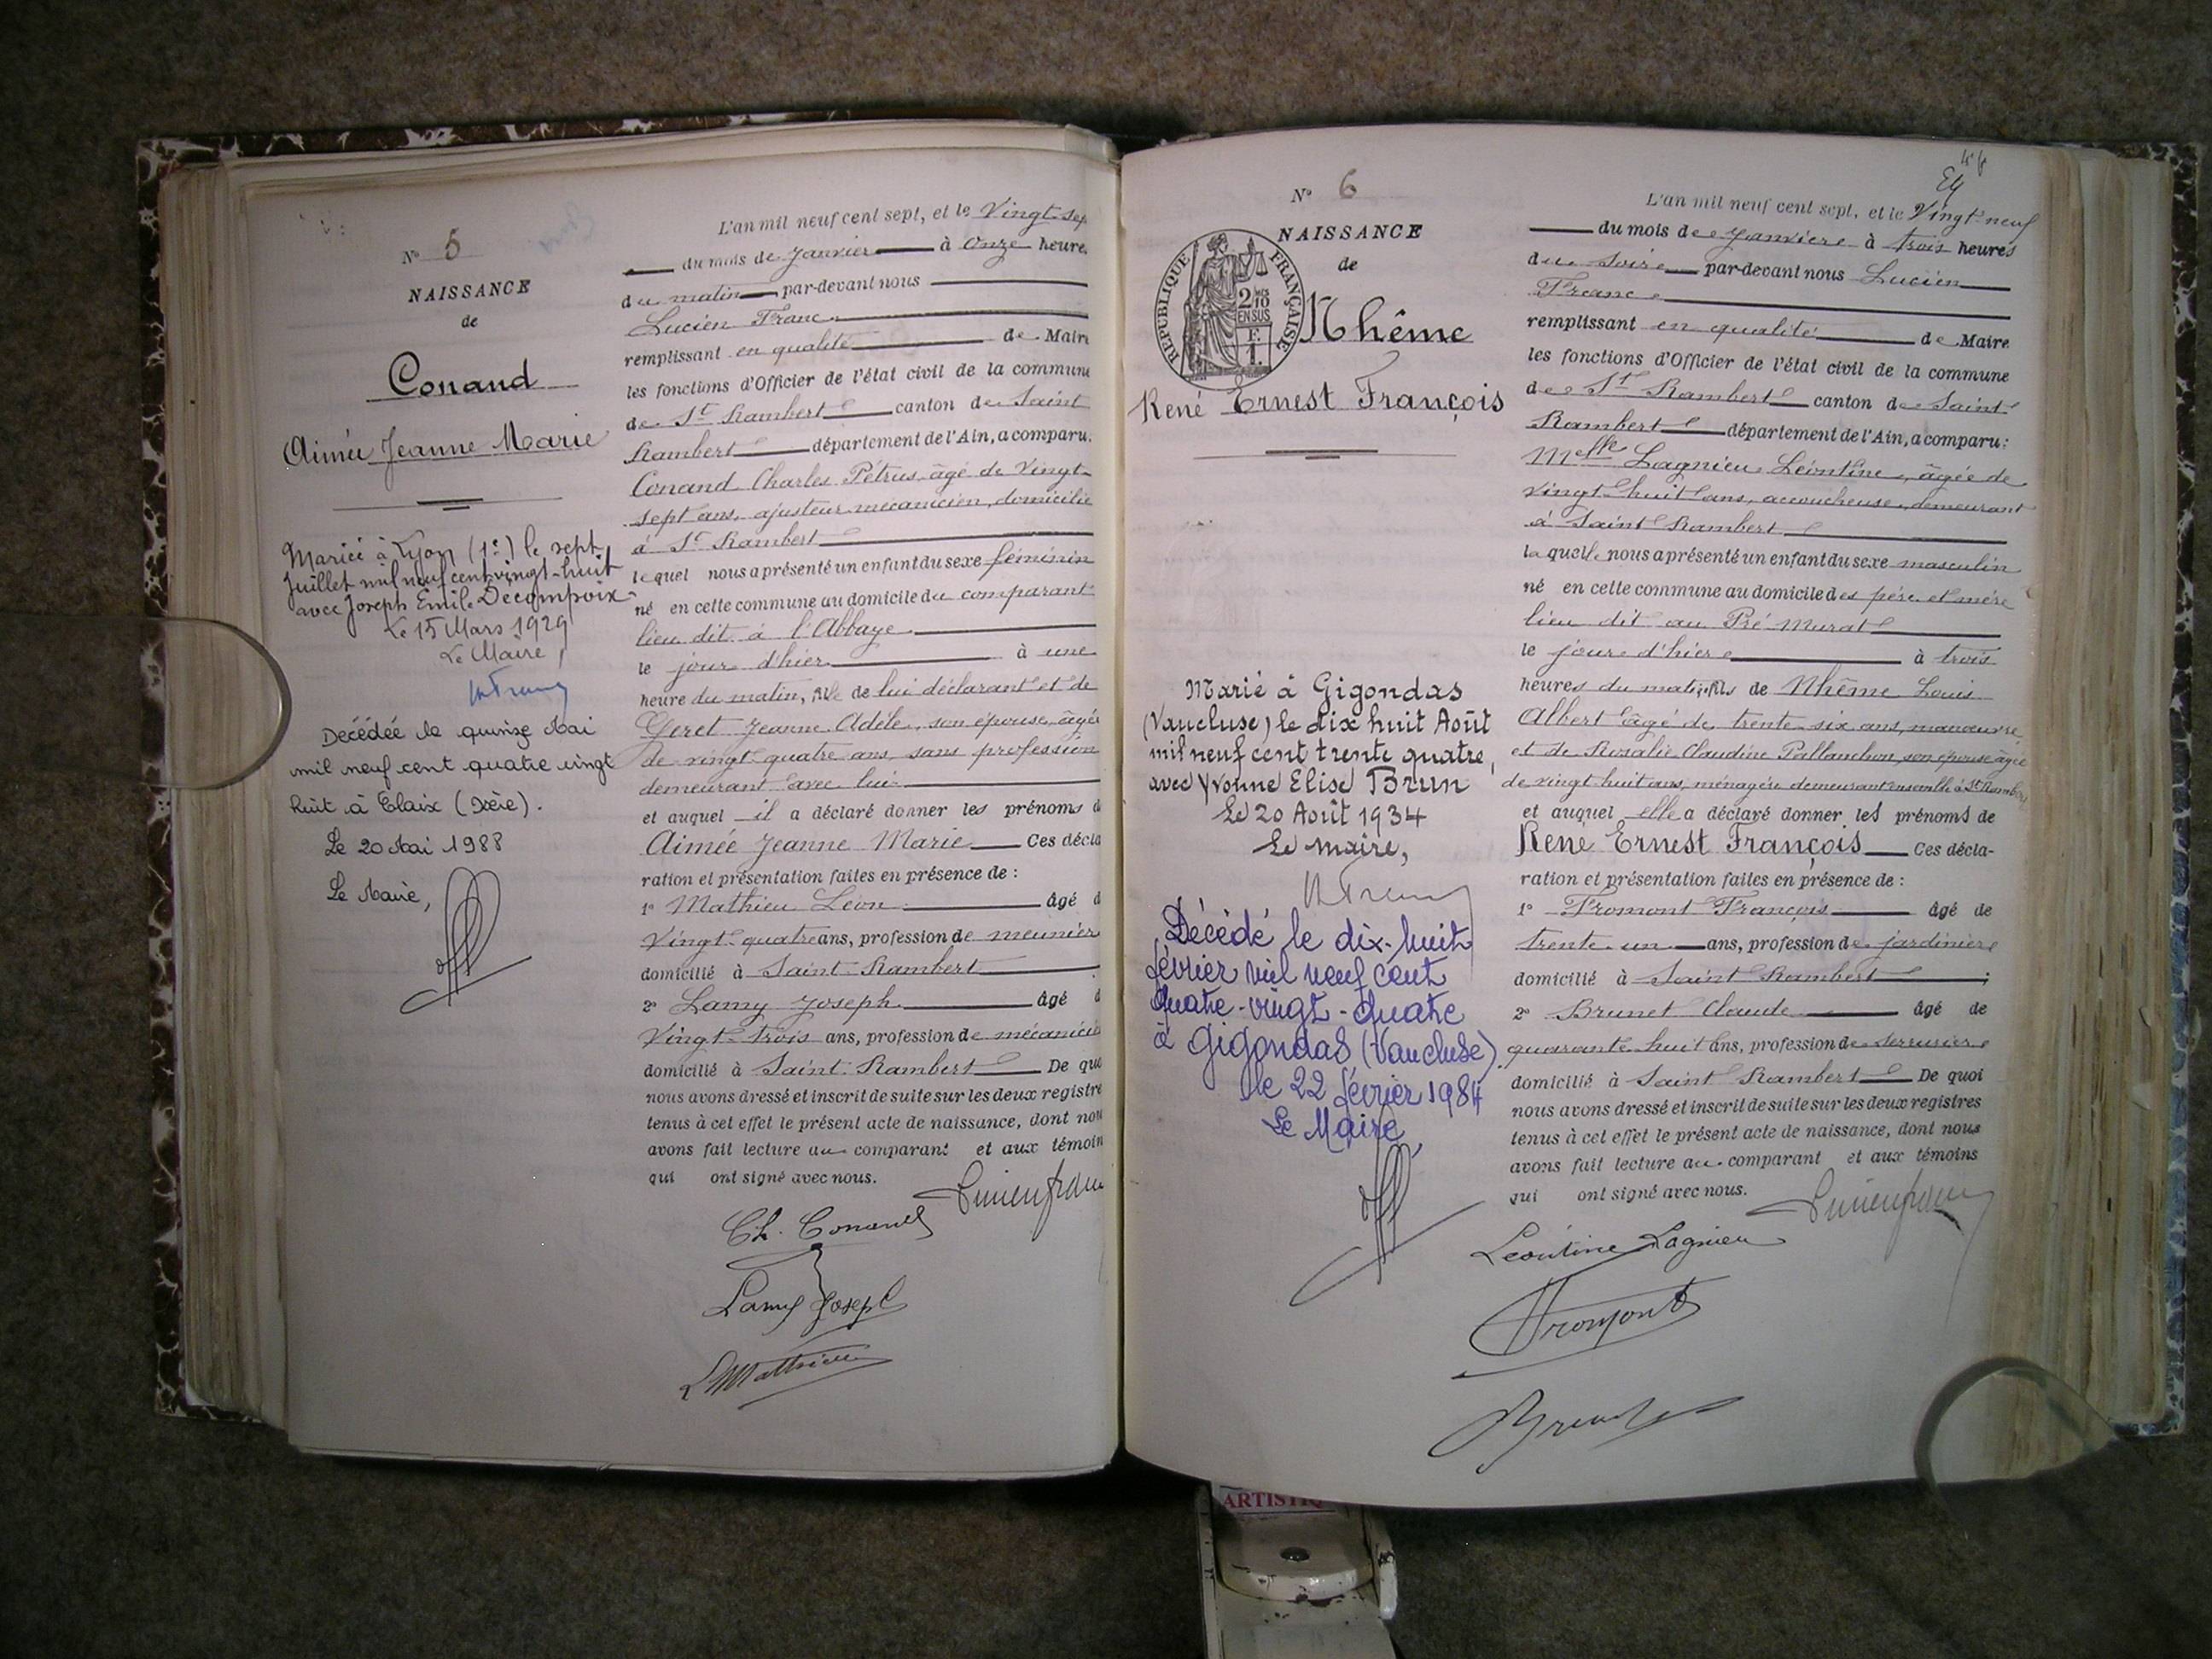 N° 5
NAISSANCE
de
Conand
Aimée Jeanne Marie
Mariée à Lyon (1e) le sept
Juillet mil neuf cent vingt-huit
avec Joseph Emile Decompoix
Le 15 Mars 1929
Le Maire,
Décédée le quinze Mai
mil neuf cent quatre vingt
huit à Claix (Isère).
Le 20 Mai 1988
Le Maire,
L'an mil neuf cent sept, et le Vingt-sep
du mois de Janvier à Onze heure
du matin par-devant nous
Lucien Franc
remplissant en qualité de Maire
les fonctions d'Officier de l'état civil de la commune
de St Rambert canton de Saint
Rambert département de l'Ain, a comparu:
Conand Charles Pétrus âgé de Vingt-
sept ans, ajusteur mécanicien, domicilié
à St Rambert
lequel nous a présenté un enfant du sexe féminin
né en cette commune au domicile du comparant
lieu dit à l'Abbaye
le jour d'hier à une
heure du matin, fille de lui déclarant et de
Geret Jeanne Adèle, son épouse, âgée
de vingt-quatre ans, sans profession
demeurant avec lui
et auquel il a déclaré donner les prénoms d
Aimée Jeanne Marie Ces décla
ration et présentation faites en présence de :
1° Mathieu Léon âgé d
Vingt-quatre ans, profession de meunier
domicilié à Saint-Rambert
2° Lamy Joseph âgé d
Vingt-trois ans, profession de mécanicie
domicilié à Saint-Rambert De quo
nous avons dressé et inscrit de suite sur les deux registre
tenus à cet effet le présent acte de naissance, dont nou
avons fait lecture au comparant et aux témoin
qui ont signé avec nous.
Lucien Franc
Ch. Conand
Lamy Joseph
L Mathieu
N° 6
NAISSANCE
de
RÉPUBLIQUE FRANÇAISE
2/10
EN SUS
F.
1.
Nhême
René Ernest François
Marié à Gigondas
(Vaucluse) le dix huit Août
mil neuf cent trente quatre,
avec Yvonne Elise Brun
Le 20 Août 1934
Le Maire,
Décédé le dix-huit
février mil neuf cent
quatre-vingt-quatre
à Gigondas (Vaucluse)
le 22 février 1984
Le Maire,
L'an mil neuf cent sept, et le Vingt-neuf
du mois de Janvier à trois heures
du soir par-devant nous Lucien
Franc
remplissant en qualité de Maire
les fonctions d'Officier de l'état civil de la commune
de St Rambert canton de Saint
Rambert département de l'Ain, a comparu:
Melle Lagnieu Léontine, âgée de
vingt-huit ans, accoucheuse, demeurant
à Saint Rambert
laquelle nous a présenté un enfant du sexe masculin
né en cette commune au domicile des père et mère
lieu dit au Pré Murat
le jour d'hier à trois
heures du matin, fils de Nhême Louis
Albert âgé de trente-six ans, manœuvre
et de Rosalie Claudine Pallanchon, son épouse âgée
de vingt huit ans, ménagère demeurant ensemble à St Rambert
et auquel elle a déclaré donner les prénoms de
René Ernest François Ces décla-
ration et présentation faites en présence de :
1° Fromont François âgé de
trente-un ans, profession de jardinier
domicilié à Saint Rambert ;
2° Brunet Claude âgé de
quarante-huit ans, profession de serrurier
domicilié à Saint Rambert De quoi
nous avons dressé et inscrit de suite sur les deux registres
tenus à cet effet le présent acte de naissance, dont nous
avons fait lecture au comparant et aux témoins
qui ont signé avec nous.
Lucien Franc
Léontine Lagnieu
Fromont
Brunet
ARTISTIQ